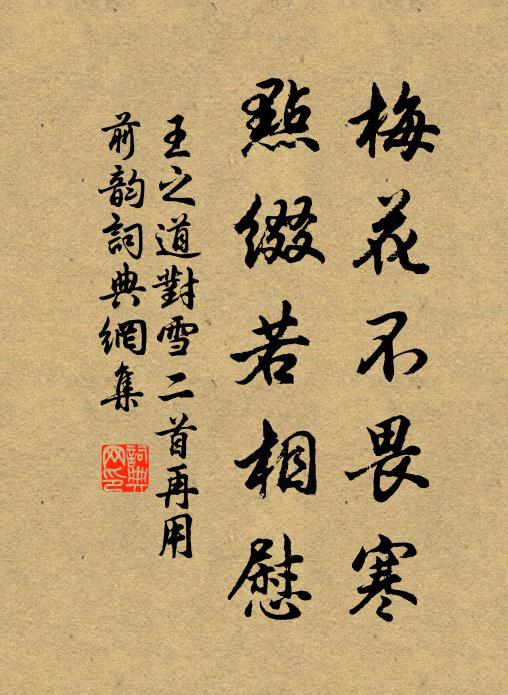 梅花不畏寒
點綴若相慰
王之道對雪二首再用
前韵詞典網集
詞典網印